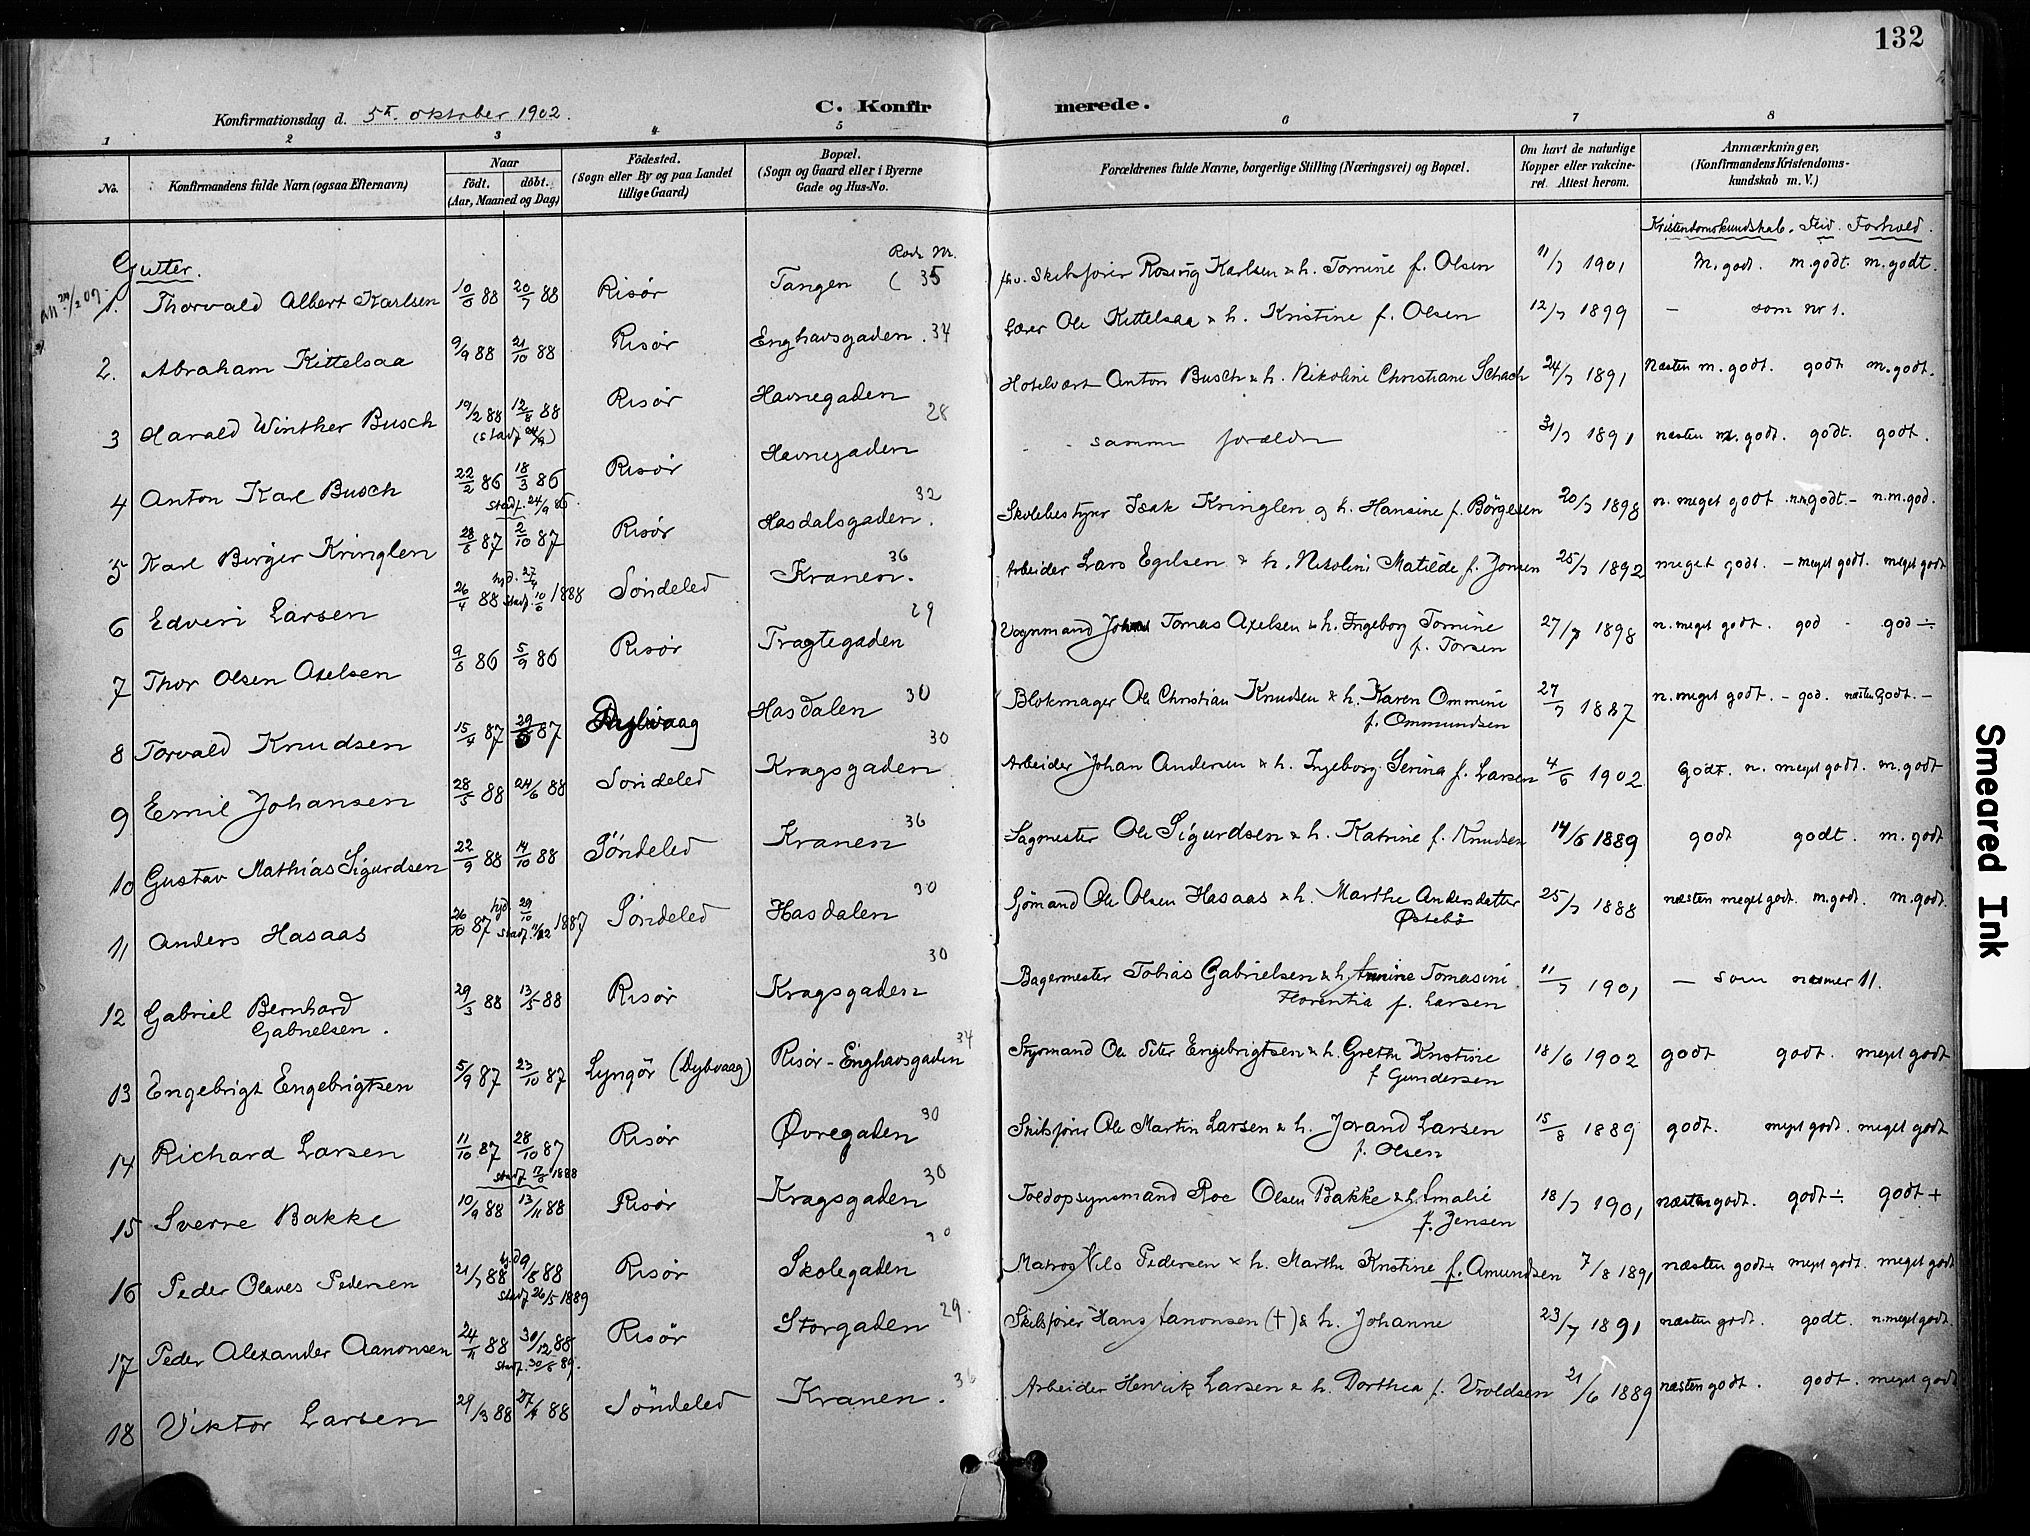 132
C. Konfirmerede.
Konfirmationsdag d. 5te oktober 1902.
1 2 3 4 5 6 7 8
No. Konfirmandens fulde Navn (ogsaa Efternavn) Naar født. døbt. (Aar, Maaned og Dag) Fødested. (Sogn eller By og paa Landet tillige Gaard) Bopæl. (Sogn og Gaard eller i Byerne Gade og Hus-No. Forældrenes fulde Navne, borgerlige Stilling (Næringsvei) og Bopæl. Om havt de naturlige Kopper eller vakcineret. Attest herom. Anmærkninger, (Konfirmandens Kristendomskundskab m. V.)
Kristendomskundskab. Flid. Forhold.
Gutter. Rode Nr.
1. Thorvald Albert Karlsen 88 20/7 88 Risør Tangen 35 fhv. Skibsfører Rosing Karlsen & h. Tomine f. Olsen 11/7 1901 M. godt. m. godt m. godt.
2. Abraham Kittelsaa 9/9 88 21/10 88 Risør Enghavsgaden. 34 Lærer Ole Kittelsaa & h. Kristine f. Olsen 12/7 1899 — som nr 1.
3 Harald Winther Busch 19/2 88 12/8 88 Risør Havnegaden 28 Hotelvært Anton Busch & h. Nikoline Christiane Schach 24/7 1891 Næsten m. godt. godt m. godt.
4 Anton Karl Busch 22/2 86 18/3 86 Stadf. 24/9 86. Risør Havnegaden samme forældre 31/7 1891 næsten m. godt. godt. godt.
5 Karl Birger Kringlen 28/8 87 2/10 87 Risør Hasdalsgaden. 32 Skolebestyrer Isak Kringlen og h. Hansine f. Börgesen 20/7 1898 n. meget godt n.m. godt - n. m. god.
6 Edvin Larsen 26/4 88 hjd. 27/4 Stadf. 10/6 1888 Søndeled Kranen. 36 Arbeider Lars Egelsen & h. Nikoline Matilde f. Jonsen 25/7 1892 meget godt. - meget godt. meget godt
7 Thor Olsen Axelsen 86 5/9 86 Risør Tragtegaden 29 Vognmand Tomas Axelsen & h. Ingeborg Tomine f. Torsen 27/7 1898 n. meget godt. god - god ÷
8 Torvald Knudsen 15/4 87 87 Hasdalen 30 Blokmager Ole Christian Knudsen & h. Karen Ommine f. Ommundsen 27/7 1887 n. meget godt. - god. næsten godt. -
9 Emil Johansen 28/5 88 24/6 88 Søndeled Kragsgaden 30 Arbeider Johan Andersen & h. Ingeborg Serina f. Larsen 4/6 1902 Godt. n. meget godt. m. godt
10 Gustav Mathias Sigurdsen 22/9 88 14/10 88 Søndeled Kranen 36 Sagmester Ole Sigurdsen & h. Katrine f. Knudsen 14/6 1889 godt godt. m. godt
11 Anders Hasaas 26/10 87 hjd. 29/10 Stadf. 11/12 1887 Søndeled Hasdalen 30 Sjømand Ole Olsen Hasaas & h. Marthe Andersdatter Østebø 25/7 1888 næsten meget godt. m. godt. m. godt.
12 Gabriel Bernhard Gabrielsen. 29/3 88 13/5 88 Risør Kragsgaden 30 Bagermester Tobias Gabrielsen & h. Tomasine Florentia f. Larsen 11/7 1901 — som numer 11.
13 Engebrigt Engebrigtsen 5/9 87 23/10 87 Lyngör (Dybvaag) Risør - Enghavsgaden 34 Styrmand Ole Peter Engebrigtsen & h. Grethe Kristine f Gundersen 18/6 1902 godt godt. meget godt
14 Richard Larsen 11/10 87 28/10 87 Stadf. 1888 Risør Øvregaden 30 Skibsfører Ole Martin Larsen & h. Jorand Larsen f. Olsen 15/8 1889 godt. meget godt. meget godt
15 Sverre Bakke 10/9 88 13/11 88 Risør Kragsgaden 30 Toldopsynsmand Roe Olsen Bakke & h. Amalie f. Jensen 18/7 1901 næsten godt. godt ÷ godt +
16 Peder Olaves Pedersen 21/7 88 hjd 9/8 88 Stadf 26/5 1889 Risør Skolegaden Matros Nils Pedersen & h. Marthe Kristine f. Amundsen 7/8 1891 næsten godt + meget godt. meget godt
17 Peder Alexander Aanonsen 24/11 88 30/12 88 Stadf. 30/6 89. Risør Storgaden 29. Skibsfører Hans Aanonsen (†) & h. Johanne 23/7 1891 næsten godt. godt. n. meget godt.
18 Viktor Larsen 29/3 88 88 Søndeled Kranen. 36 Arbeider Henrik Larsen & h. Dorthea f. Vroldsen 21/6 1889 næsten godt. godt. meget godt
Smeared Ink